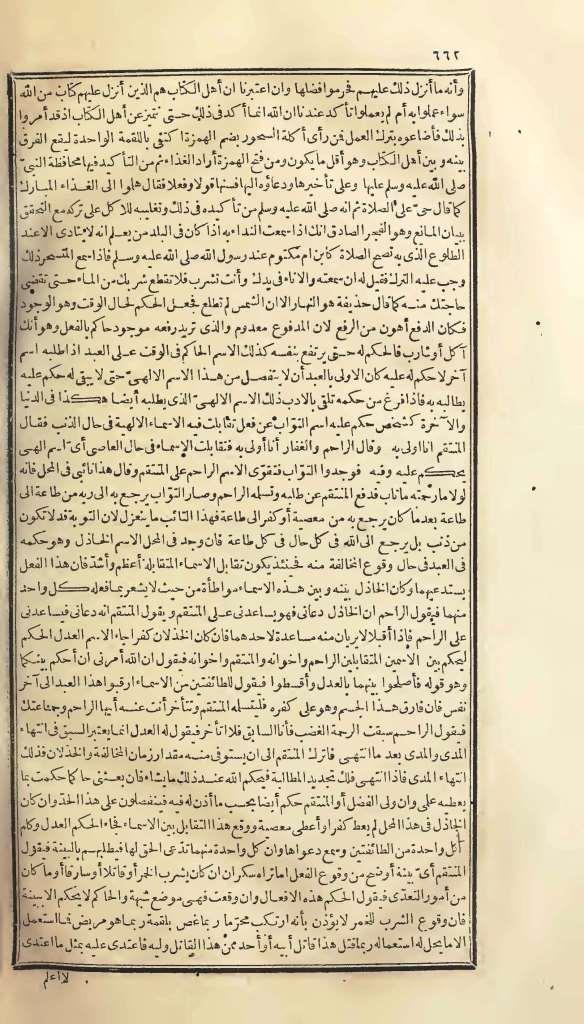 ٦٦٢
وأنه ما أنزل ذلك عليهم فحرموا فضلها وان اعتبرنا ان أهل الكتاب هم الذين أنزل عليهم كتاب من الله
سواء عملوا به أم لم يعملوا تأكد عندنا ان الله انما أكد فى ذلك حتى نتميز عن أهل الكتاب اذ قد أمروا
بذلك فأضاعوه بترك العمل فن رأى أكلة السحور بضم الهمزة اكتفى باللقمة الواحدة ليقع الفرق
بينه وبين أهل الكتاب وهو أقل ما يكون ومن فتح الهمزة أراد الغذاء ثم من التأكيد فيها محافظة النبىّ
صلى الله عليه وسلم عليها وعلى تأخيرها ودعاؤه اليها فسنها قولا وفعلا فقال هلموا الى الغذاء المبارك
كما قال حىّ على الصلاة ثم انه صلى الله عليه وسلم من تأكيده فى ذلك وتغليبه للاكل على تركه مع التحقق
ببيان المانع وهو الفجر الصادق انك اذا سمعت النداء به اذا كان فى البلد من يعلم انه لا ينادى الا عند
الطلوع الذى به تصح الصلاة كابن ام مكتوم عند رسول الله صلى الله عليه وسلم فاذا سمع المتسحر ذلك
وجب عليه الترك فقيل له ان سمعته والاناء فى يدك وأنت تشرب فلا تقطع شربك من الماء حتى تقضى
حاجتك منه كما قال حذيفة هو النهار الا ان الشمس لم تطلع فجعل الحكم لحال الوقت وهو الوجود
فكان الدفع أهون من الرفع لان المدفوع معدوم والذى تريد رفعه موجود حاكم بالفعل وهو أنك
آكل أو شارب فالحكم له حتى يرتفع بنفسه كذلك الاسم الحاكم فى الوقت على العبد اذا طلبه اسم
آخر لا حكم له عليه كان الاولى بالعبد أن لا ينفصل من هذا الاسم الالهىّ حتى لا يبقى له حكم عليه
يطالبه به فاذا فرغ من حكمه تلقى بالادب ذلك الاسم الالهىّ الذى يطلبه أيضا هكذا فى الدنيا
والآخرة كشخص حكم عليه اسم التوّاب عن فعل تقابلت فيه الاسماء الالهية فى حال الذنب فقال
المنتقم انا اولى به وقال الراحم والغفار أنا أولى به فتقابلت الاسماء فى حال العاصى أىّ اسم الهى
يحكم عليه وفيه فوجدوا التوّاب فتقوى الاسم الراحم على المنتقم وقال هذا نائبى فى المحل فانه
لولا ما رحمته ما تاب فدفع المنتقم عن طلبه وتسلمه الراحم وصار التوّاب يرجع به الى ربه من طاعة الى
طاعة بعد ما كان يرجع به من معصية أو كفر الى طاعة فهذا التائب ما ينعزل لان التوبة قد لا تكون
من ذنب بل يرجع الى الله فى كل حال فى كل طاعة فان وجد فى المحل الاسم الخاذل وهو حكمه
فى العبد فى حال وقوع المخالفة منه فحينئذ يكون تقابل الاسماء المتقابلة أعظم وأشدّ فان هذا الفعل
يستدعيهما وكان الخاذل بينه وبين هذه الاسماء مواطأة من حيث لا يشعر بما فعله كل واحد
منهما فيقول الراحم ان الخاذل دعانى فهو يساعدنى على المنتقم ويقول المنتقم انه دعانى فيساعدنى
على الراحم فاذا أقبلا لا يريان منه مساعدة لاحدهما فان كان الخذلان كفرا جاء الاسم العدل الحكم
ليحكم بين الاسمين المتقابلين الراحم واخوانه والمنتقم واخوانه فيقول ان الله أمرنى أن أحكم بينكما
وهو قوله فأصلحوا بينهما بالعدل وأقسطوا فيقول للطائفتين من الاسماء ارقبوا هذا العبد الى آخر
نفس فان فارق هذا الجسم وهو على كفره فليتسلمه المنتقم وتتأخر أنت عنه أيها الراحم وجماعتك
فيقول الراحم سبقت الرحمة الغضب فأنا السابق فلا اتأخر فيقول له العدل انما يعتبر السبق فى انتهاء
المدى والمدى بعد ما انتهى فاترك المنتقم الى ان يستوفى منه مقدار زمان المخالفة والخذلان فذلك
انتهاء المدى فاذا انتهى فلك تجديد المطالبة فيحكم الله عند ذلك ما يشاء فان بعثنى حاكما حكمت بما
يعطيه علمى وان ولى الفضل أو المنتقم حكم أيضا بحسب ما أذن له فيه فينفصلون على هذا الحدّ وان كان
الخاذل فى هذا المحل لم يعط كفرا وأعطى معصية ووقع هذا التقابل بين الاسماء فجاء الحكم العدل وكلم
كل واحدة من الطائفتين وسمع دعواها وان كل واحدة منهما تدّعى الحق لها فيطلبهم بالبينة فيقول
المنتقم أىّ بينة أوضح من وقوع الفعل اما تراه سكران ان كان يشرب الخمر أو قاتلا أو سارقا أو ما كان
من أمور التعدّى فيقول الحكم هذه الافعال وان وقعت فهى موضع شبهة والحاكم لا يحكم الا ببينة
فان وقوع الشرب للخمر لا يؤذن بأنه ارتكب محرّما ربما غص بلقمة ربما هو مريض فما استعمل
الا ما يحل له استعماله ربما قتل هذا قاتل أبيه أو أحد ممن هذا القاتل وليه فاعتدى عليه بمثل ما اعتدى
لا أعلم